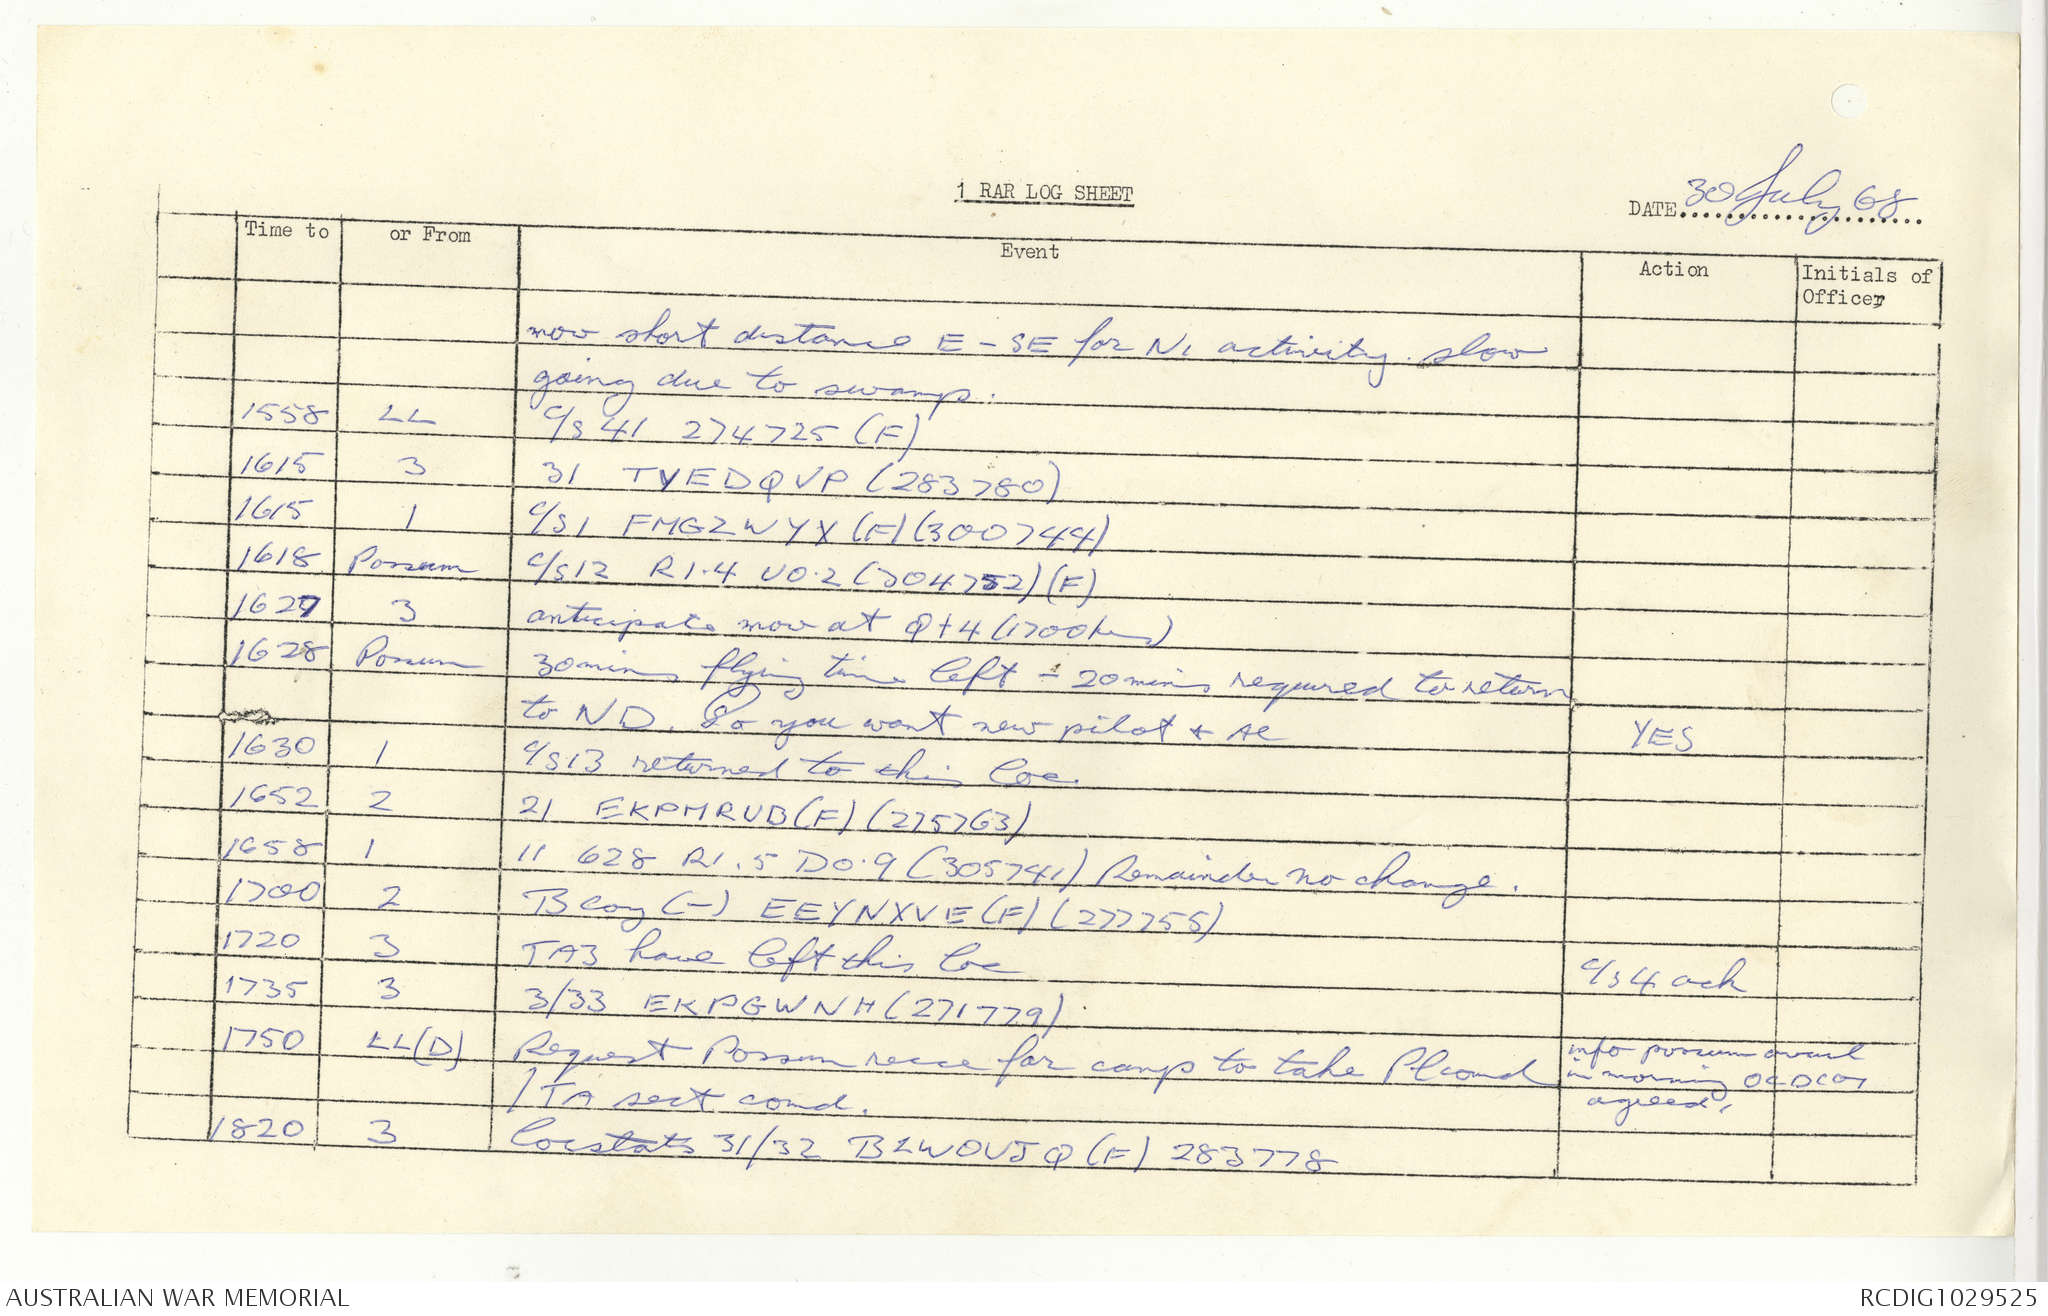 1 RAR LOG SHEET
DATE 30 July 68
Time to or From Event Action Initials of Officer
mov short distance E - SE for N1 activity. slow
going due to swamps.
1558 LL C/S 41 274725 (F)
1615 3 31 TYEDQVP (283780)
1615 1 C/S1 FMGZWYX (F) (300744)
1618 Possum C/S12 R1.4 U0.2 (304752) (F)
1627 3 anticipate mov at Q+4 (1700hrs)
1628 Possum 30mins flying time left ± 20mins required to return
to ND. Do you want new pilot + AC YES
1630 1 C/S13 returned to this loc.
1652 2 21 EKPMRUB (F) (275763)
1658 1 11 628 R1.5 D0.9 (305741) Remainder no change.
1700 2 B Coy (-) EEYNXVE (F) (277755)
1720 3 TA3 have left this loc C/S 4 ack
1735 3 3/33 EKPGWNH (271779)
1750 LL(D) Request Possum recce for camp to take Pl comd info possum avail
/ TA sect comd. in morning OC DCoy
agreed.
1820 3 locstats 31/32 BLWOVJQ (F) 283778
AUSTRALIAN WAR MEMORIAL RCDIG1029525